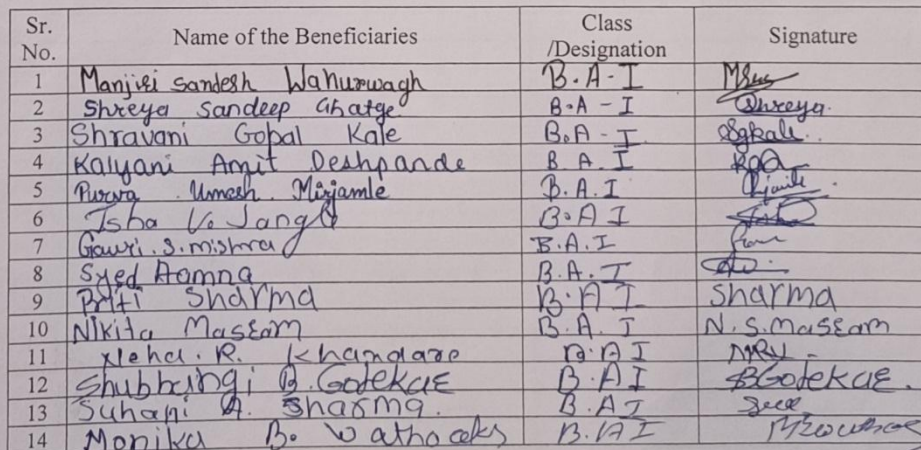 Sr. No. Name of the Beneficiaries Class /Designation Signature
1 Manjiri Sandesh Wahurwagh B.A-I
2 Shreya Sandeep Ghatge B.A-I Shreya.
3 Shravani Gopal Kale B.A-I Sgkale.
4 Kalyani Amit Deshpande B.A.I
5 Purva Umesh Mirjamle B.A.I
6 Isha V. Jangid B.A I
7 Gauri.S.mishra B.A.I
8 Syed Aamna B.A.I
9 Priti Sharma B.A I Sharma
10 Nikita Maseam B.A.I N.S.Maseam
11 Neha.R. Khandare B.AI
12 Shubhangi B.Godekae B.AI BGodekae.
13 Suhani A. Sharma. B.AI
14 Monika B. B.AI